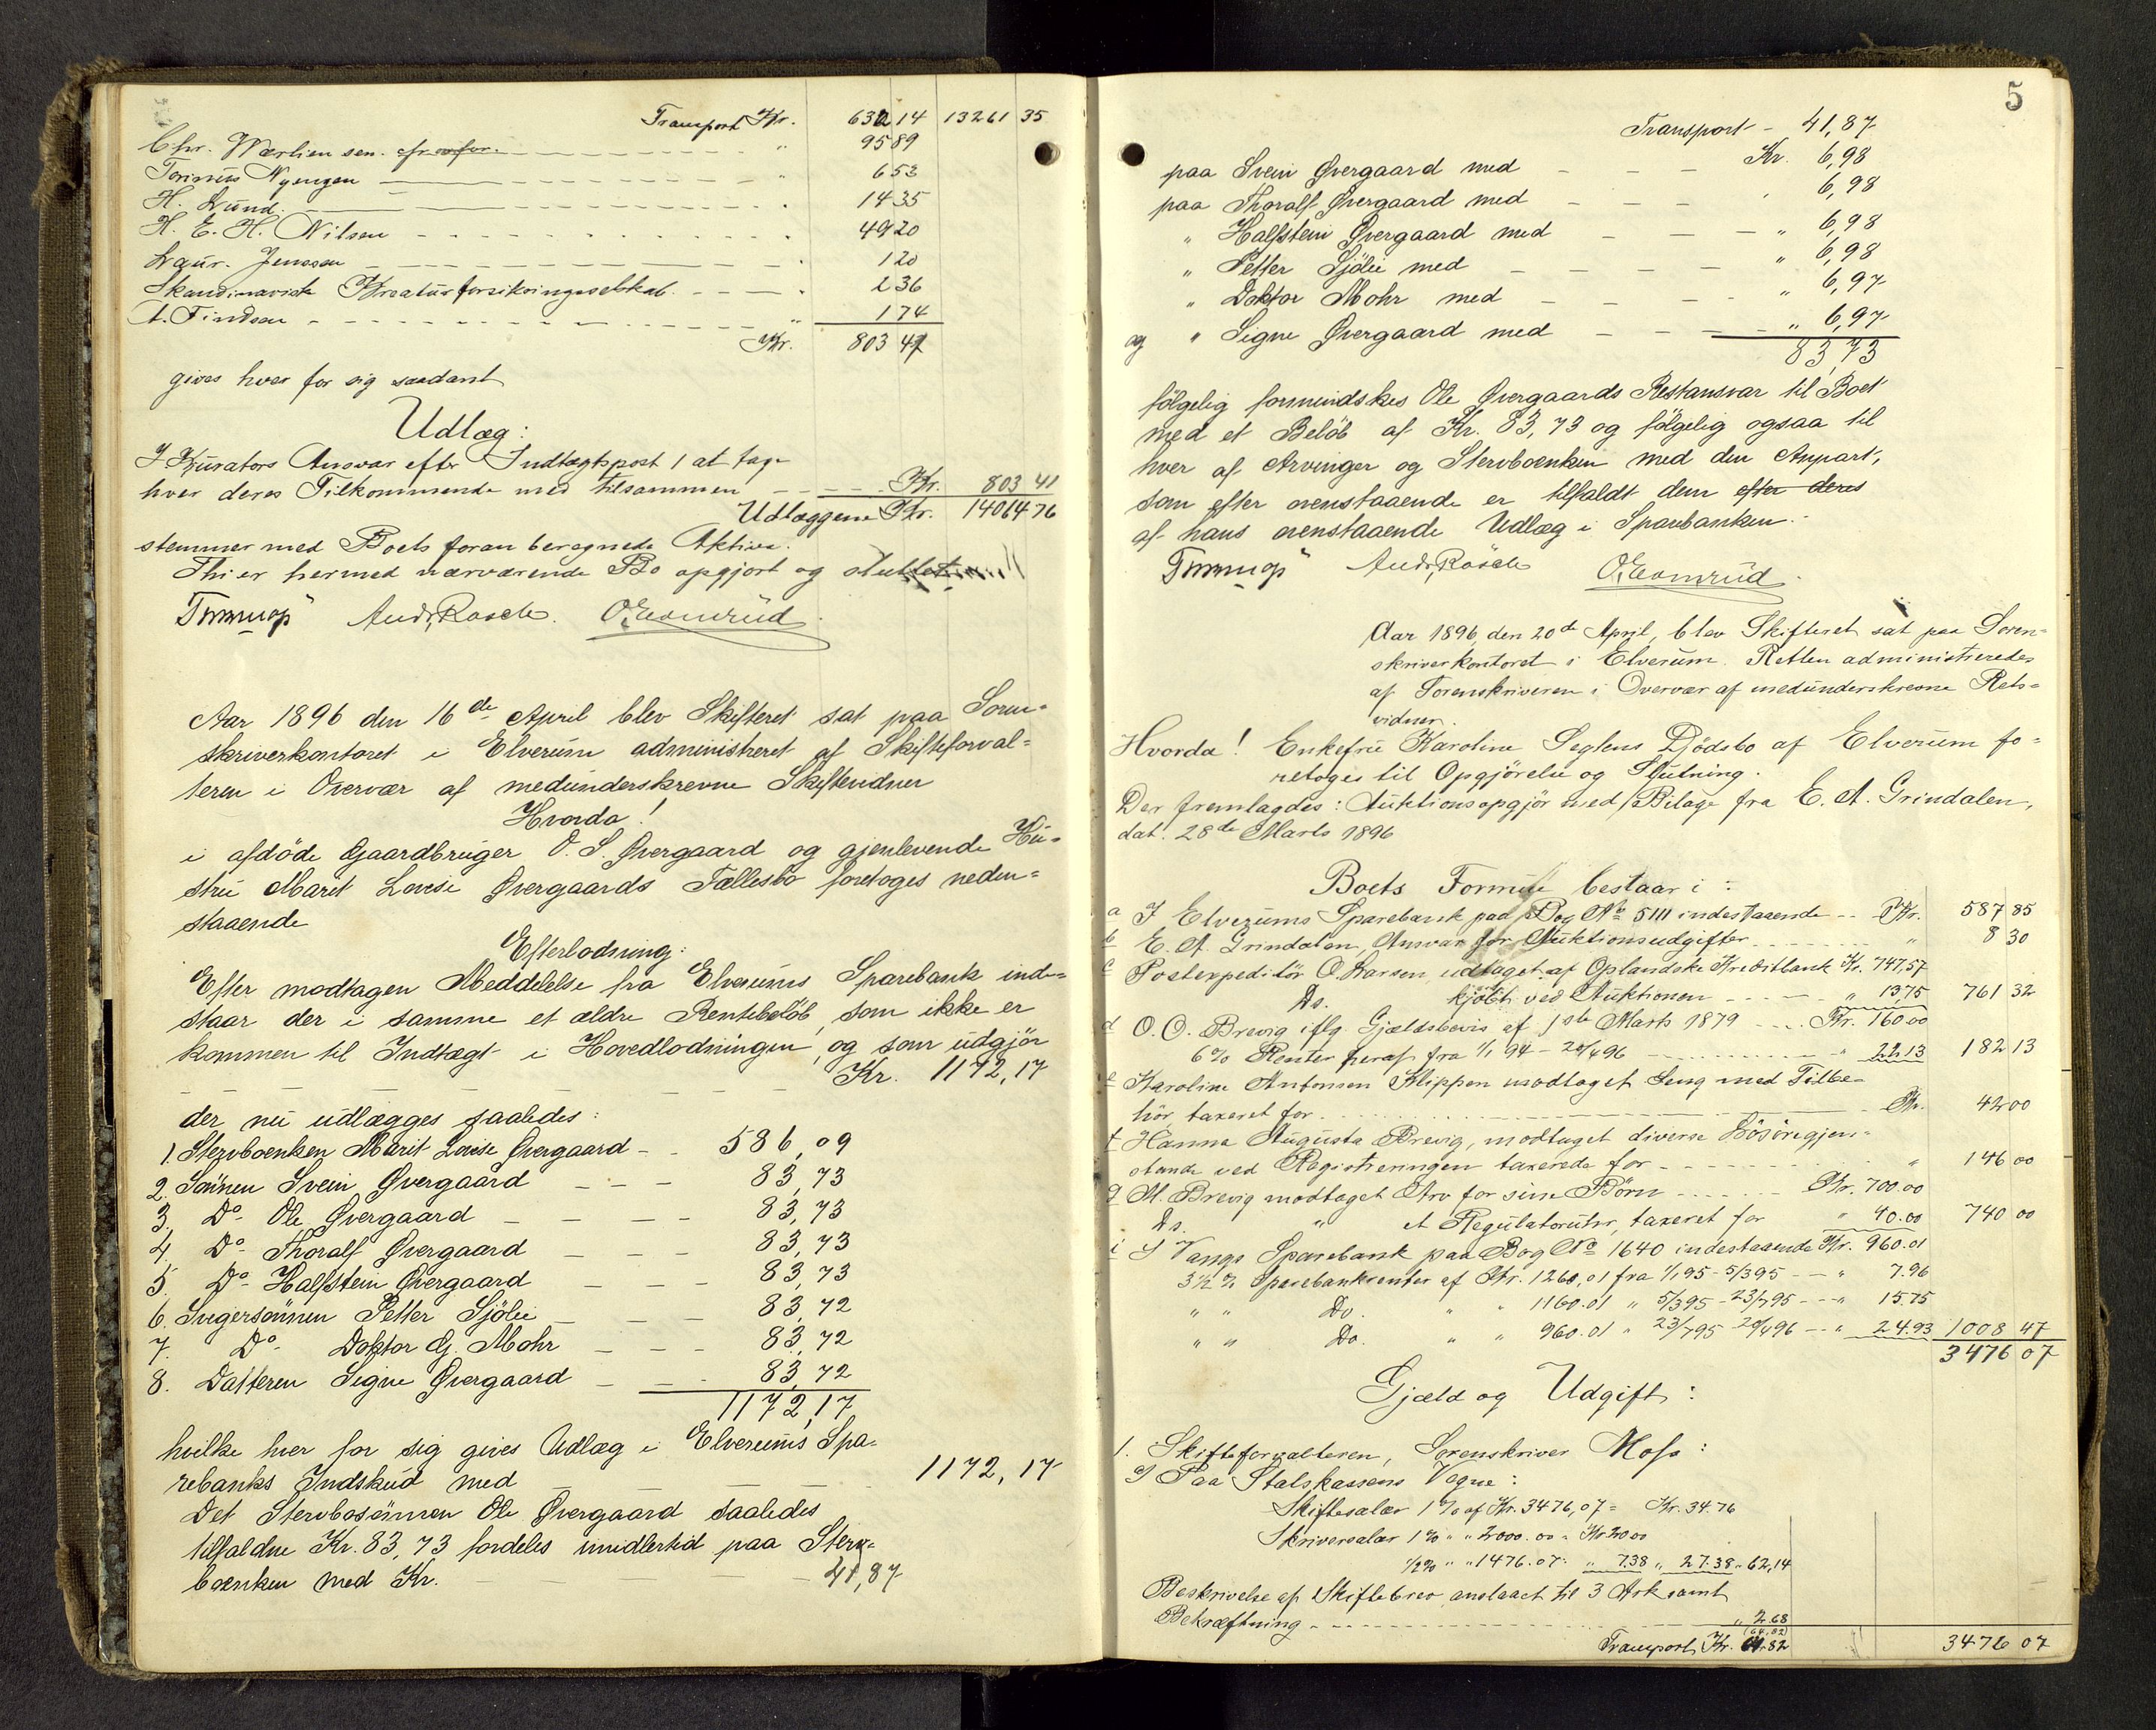 Transport Kr. 632 14 13261 35
Chr. Mærlien sen. " 95 89
Torinus Nyengen " 6 53
H. Lund. " 14 35
H. E. H. Nilsen " 49 20
Laur. Jenssen " 1 20
Skandinavisk Kreaturforsikringsselskab. " 2 36
A. Findsen " 1 74
Kr. 803 41
gives hver for sig saadant
Udlæg:
I Kurators Ansvar efter Indtægtspost 1 at tage
hver deres Tilkommende med tilsammen Kr. 803 41
Udlæggene Kr. 14064 76
stemmer med Boets foran beregnede Aktiva.
Thi er hermed nærværende Bo opgjort og sluttet
And. Rasch. O. Evenrud
Aar 1896 den 16de April blev Skifteret sat paa Soren-
skriverkontoret i Elverum administreret af Skifteforval-
teren i Overvær af medunderskrevne Skiftevidner
Hvorda!
i afdöde Gaardbruger O. S. Øvergaard og gjenlevende Hu-
stru Marit Lovise Øvergaards Fællesbo foretoges neden-
staaende
Efterlodning:
Efter modtagen Meddelelse fra Elverums Sparebank inde-
staar der i samme et ældre Rentebelöb, som ikke er
kommen til Indtægt i Hovedlodningen, og som udgjör
Kr. 1172,17
der nu udlægges saaledes:
1. Stervboenken Marit Lovise Øvergaard - - 586,09
2. Sönnen Svein Øvergaard - - - 83,73
3. Do- Ole Øvergaard - - - - 83,73
4. Do- Thoralf Øvergaard - - - 83,73
5. Do- Halfstein Øvergaard - - - 83,73
6. Svigersönnen Petter Sjölie - - - 83,72
7. Do- Doktor G. Mohr - - - 83,72
8. Datteren Signe Øvergaard - - - 83,72
1172,17
hvilke hver for sig gives Udlæg i Elverums Spa-
rebanks Indskud med - - - - 1172,17
Det Stervbosönnen Ole Øvergaard saaledes
tilfaldne Kr. 83,73 fordeles imidlertid paa Sterv-
boenken med Kr. - - - - 41,87
5
Transport - 41,87
paa Svein Øvergaard med - - - Kr. 6,98
paa Thoralf Øvergaard med - - - " 6,98
" Halfstein Øvergaard med - - - " 6,98
" Petter Sjölie med - - - - " 6,98
" Doktor Mohr med - - - - " 6,97
og " Signe Øvergaard med - - - - " 6,97
83,73
fölgelig formindskes Ole Øvergaards Restansvar til Boet
med et Belöb af Kr. 83,73 og fölgelig ogsaa til
hver af Arvinger og Stervboenken med den Anpart,
som efter ovenstaaende er tilfaldt dem efter deres
af hans ovenstaaende Udlæg i Sparebanken.-
And. Rasch O. Evenrud
Aar 1896, den 20de April, blev Skifteret sat paa Soren-
skriverkontoret i Elverum. Retten administreredes
af Sorenskriveren i Overvær af medunderskrevne Rets-
vidner.
Hvorda! Enkefru Karoline Seglens Dödsbo af Elverum fo-
retoges til Opgjörelse og Slutning.
Der fremlagdes: Auktionsopgjör med 1 Bilage fra E. A. Grindalen,
dat. 28de Marts 1896
Boets Formue bestaar i:
a I Elverums Sparebank paa Bog No 5111 indestaaende - - Kr. 587 85
b E. A. Grindalen, Ansvar for Auktionsudgifter " 8 30
c Postexpeditör O. Larsen udtaget af Oplandske Kreditbank Kr. 747,57
Do. kjöbt ved Auktionen " 13,75 761 32
d O. O. Brevig iflg. Gjældsbevis af 1ste Marts 1879 Kr. 160.00
6 % Renter heraf fra 1/1 94 - 20/4 96 " 22.13 182 13
e Karoline Antonsen Klippen modtaget Seng med Tilbe-
hör, taxeret for Kr. 42 00
f Hanna Augusta Brevig, modtaget diverse Lösöregjen-
stande ved Registreringen taxerede for " 146 00
g M. Brevig modtaget Arv for sine Börn Kr. 700.00
Do. " et Regulatoruhr, taxeret for " 40.00 740 00
i I Vangs Sparebank paa Bog No 1640 indestaaende Kr. 960.01
3 1/2 % Sparebankrenter af Kr. 1260,01 fra 1/1 95 - 5/3 95 " 7.96
" " Do. " " 1160.01 " 5/3 95 - 23/7 95 " 15.75
" " Do. " " 960.01 " 23/7 95 20/4 96 " 24.93 1008 47
3476 07
Gjæld og Udgift:
1. Skifteforvalteren, Sorenskriver Moss:
Paa Statskassens Vegne:
Skiftesalær 1 % af Kr. 3476,07 = Kr. 34.76
Skriversalær 1 % " " 2000.00 = Kr 20 00
1/2 % " " 1476.07 = " 7.38 " 27.38 " 62,14
Beskrivelse af Skiftebrev anslaaet til 3 Ark samt
Bekræftning " 2.68
(64,82)
Transport Kr. 64.82 3476 07